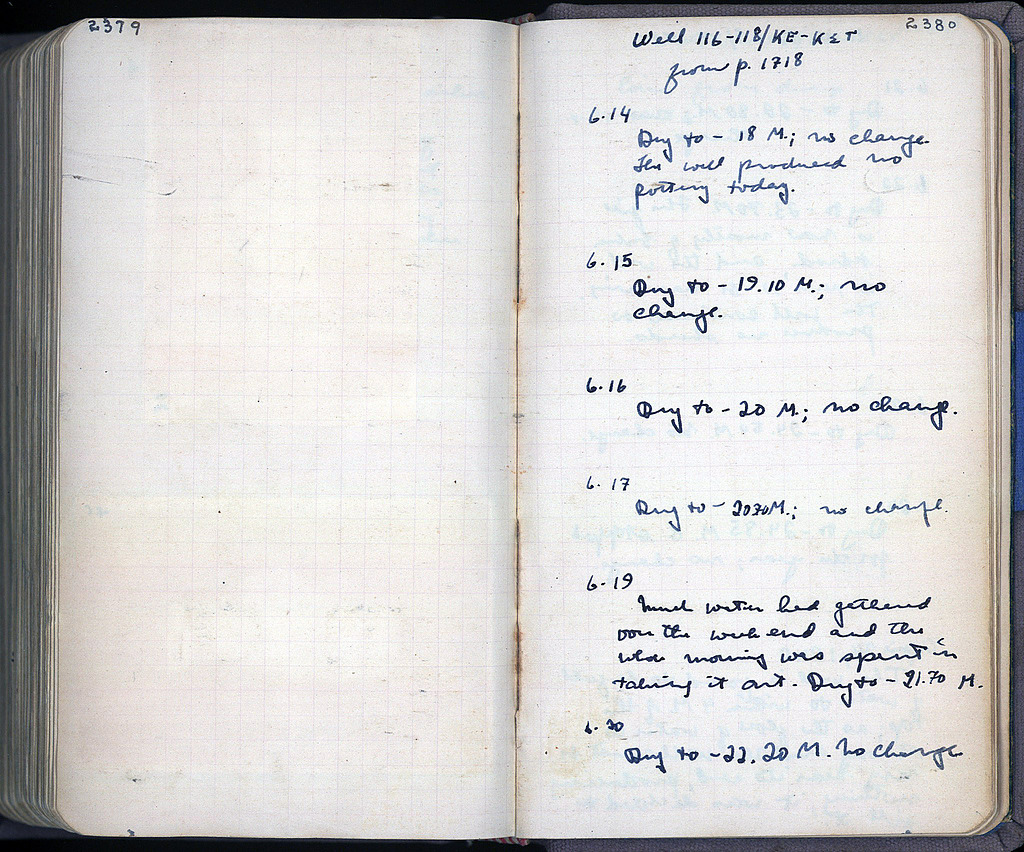 2379
2380
Well 116-118/KE-KΣT
from p. 1718
6.14
Dug to - 18 M.; no change.
The well produced no
pottery today.
6.15
Dug to - 19.10 M.; no
change.
6.16
Dug to - 20 M.; no change.
6.17
Dug to - 20.70 M.; no change.
6.19
Much water had gathered
over the week end and the
whole morning was spent in
taking it out. Dug to - 21.70 M.
6.20
Dug to - 22.20 M. No change.